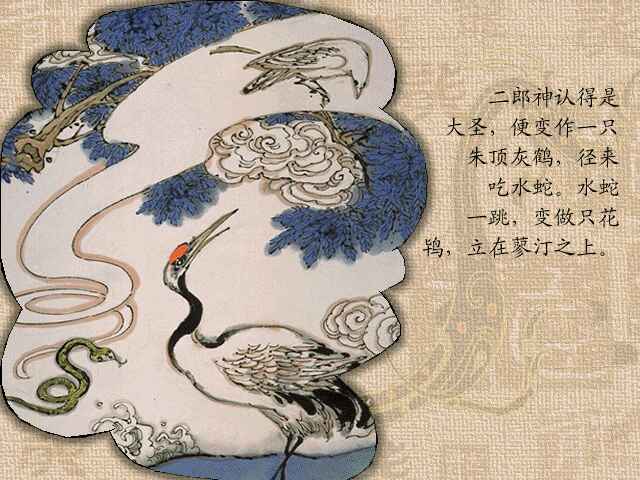 二郎神认得是
大圣，便变作一只
朱顶灰鹤，径来
吃水蛇。水蛇
一跳，变做只花
鸨，立在蓼汀之上。